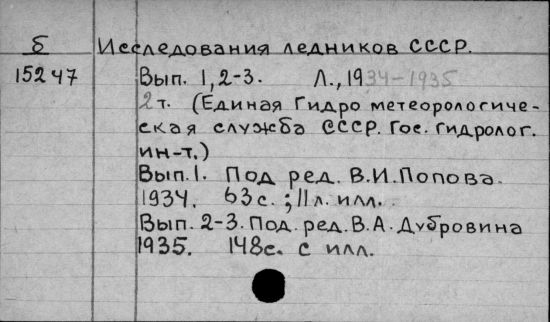 б Исследования ледников СССР.
15247 Вып. 1, 2-3. Л., 1934-1935
2т. (Единая Гидрометеорологиче-
ская служба СССР. Гос. гидролог.
ин-т.)
Вып. 1. Под ред. В.И. Попова.
1934. 63с.; 11л. илл.
Вып. 2-3. Под. ред. В.А. Дубровина
1935. 148с. с илл.